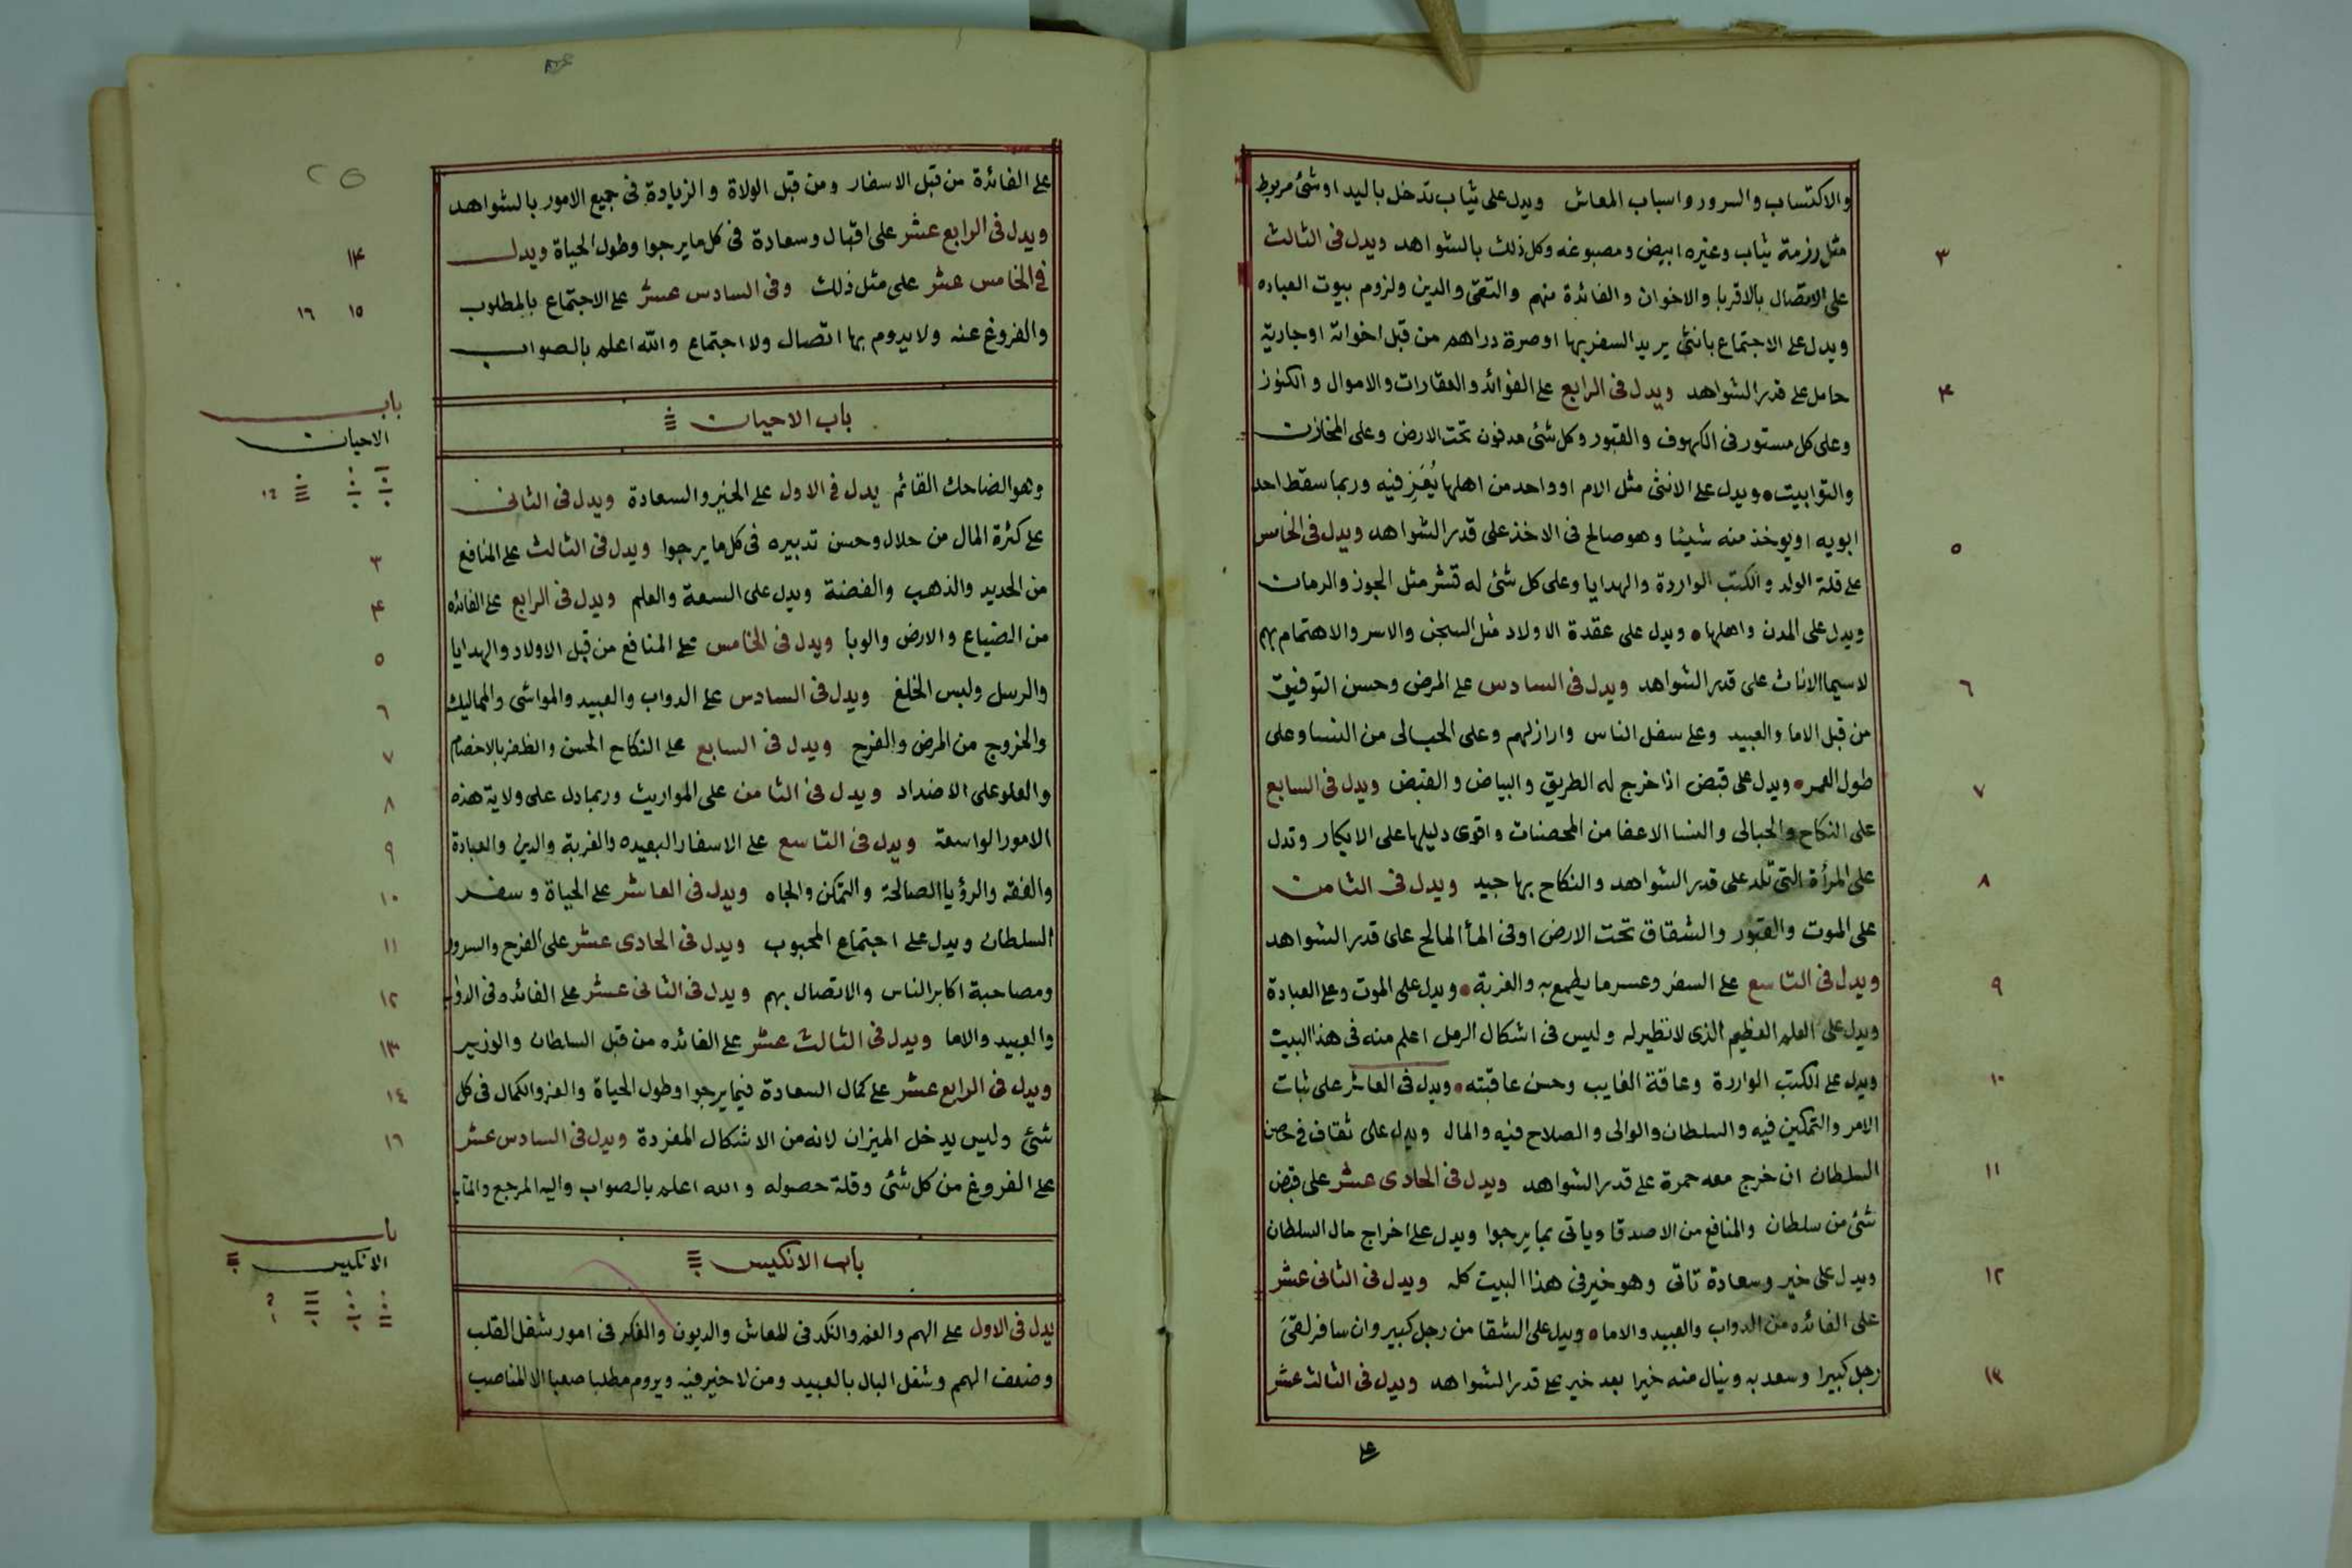 والاكتساب والسرور واسباب المعاش ويدل على ثياب تدخل باليد اوشئ مربوط
مثل رزمة ثياب وغيره ابيض ومصبوغه وكل ذلك بالشواهد ويدل فى الثالث
على الاتصال بالاقربا والاخوان والفائدة منهم والتقى والدين ولزوم بيوت العباده
ويدل على الاجتماع بانثى يريد السفر بها اوصرة دراهم من قبل اخواته اوجارية
حامل على قدر الشواهد ويدل فى الرابع على الفوائد والعقارات والاموال والكنوز
وعلى كل مستور فى الكهوف والقبور وكل شئ مدفون تحت الارض وعلى المخازن
والتوابيت ويدل على الانثى مثل الام او واحد من اهلها فيه وربما سقط احد
ابويه اويوخذ منه شيئا وهو صالح فى الاخذ على قدر الشواهد ويدل فى الخامس
على قلة الولد والكتب الواردة والهدايا وعلى كل شئ له قشر مثل الجوز والرمان
ويدل على المدن واهلها ويدل على عقدة الاولاد مثل السجن والاسر والاهتمام بهم
لاسيما الاناث على قدر الشواهد ويدل فى السادس على المرض وحسن التوفيق
من قبل الاما والعبيد وعلى سفل الناس وارازلهم وعلى الحبالى من النسا وعلى
طول العمر ويدل على قبض اذا خرج له الطريق والبياض والقبض ويدل فى السابع
على النكاح والحبالى والنسا الاعفا من المحصنات واقوى دليلها على الابكار وتدل
على المرأة التى تلد على قدر الشواهد والنكاح بها جيد ويدل فى الثامن
على الموت والقبور والشقاق تحت الارض اوفى الماٴ المالح على قدر الشواهد
ويدل فى التاسع على السفر وعسر ما يطمع به والغربة ويدل على الموت وعلى العبادة
ويدل على العلم العظيم الذى لانظير له وليس فى اشكال الرمل اعلم منه فى هذا البيت
ويدل على الكتب الواردة وعاقة الغايب وحسن عاقبته ويدل فى العاشر على ثبات
الامر والتمكين فيه والسلطان والوالى والصلاح فيه والمال ويدل على ثقاف فى حصن
السلطان ان خرج معه حمرة على قدر الشواهد ويدل فى الحادى عشر على قبض
شئ من سلطان والمنافع من الاصدقا وياتى بما يرجوا ويدل على اخراج مال السلطان
ويدل على خير وسعادة تاتى وهو خير فى هذا البيت كله ويدل فى الثانى عشر
على الفائده من الدواب والعبيد والاما ويدل على الشقا من رجل كبير وان سافر لقى
رجل كبيرا وسعد به وينال منه خيرا بعد خير على قدر الشواهد ويدل فى الثالث عشر
على
٣
۴
٥
٦
٧
٨
٩
١٠
١١
١٢
١٣
على الفائدة من قبل الاسفار ومن قبل الولاة والزيادة فى جميع الامور بالشواهد
ويدل فى الرابع عشر على اقبال وسعادة فى كل ما يرجوا وطول الحياة ويدل
فى الخامس عشر على مثل ذلك وفى السادس عشر على الاجتماع بالمطلوب
والفروغ عنه ولا يدوم بها اتصال ولا اجتماع والله اعلم بالصواب
باب الاحيان
وهو الضاحك القائم يدل فى الاول على الخير والسعادة ويدل فى الثانى
على كثرة المال من حلال وحسن تدبيره فى كل ما يرجوا ويدل فى الثالث على المنافع
من الحديد والذهب والفضة ويدل على السعة والعلم ويدل فى الرابع على الفائده
من الضياع والارض والوبا ويدل فى الخامس على المنافع من قبل الاولاد والهدايا
والرسل ولبس الخلع ويدل فى السادس على الدواب والعبيد والمواشى والمماليك
والخروج من المرض والفرح ويدل فى السابع على النكاح الحسن والظفر بالاخصام
والعلو على الاضداد ويدل فى الثامن على المواريث وربما دل على ولاية هذه
الامور الواسعة ويدل فى التاسع على الاسفار البعيده والغربة والدين والعبادة
والفقه والرؤيا الصالحة والتمكن والجاه ويدل فى العاشر على الحياة وسفر
السلطان ويدل على اجتماع المحبوب ويدل فى الحادى عشر على الفرح والسرور
ومصاحبة اكابر الناس والاتصال بهم ويدل فى الثانى عشر على الفائده فى الدواب
والعبيد والاما ويدل فى الثالث عشر على الفائده من قبل السلطان والوزير
ويدل فى الرابع عشر على كمال السعادة فيما يرجوا وطول الحياة والعز والكمال فى كل
شئ وليس يدخل الميزان لانه من الاشكال المفردة ويدل فى السادس عشر
على الفروغ من كل شئ وقلة حصوله والله اعلم بالصواب واليه المرجع والمآب
باب الانكيس
يدل فى الاول على الهم والغم والنكد فى المعاش والديون والفكر فى امور شغل القلب
وضعف الهمم وشغل البال بالعبيد ومن لا خير فيه ويروم مطلبا صعبا الا المناصب
١۴
١٥ ١٦
باب
الاحيان
٣
۴
٥
٦
٧
٨
٩
١٠
١١
١٢
١٣
١٤
١٦
باب
الانكيس